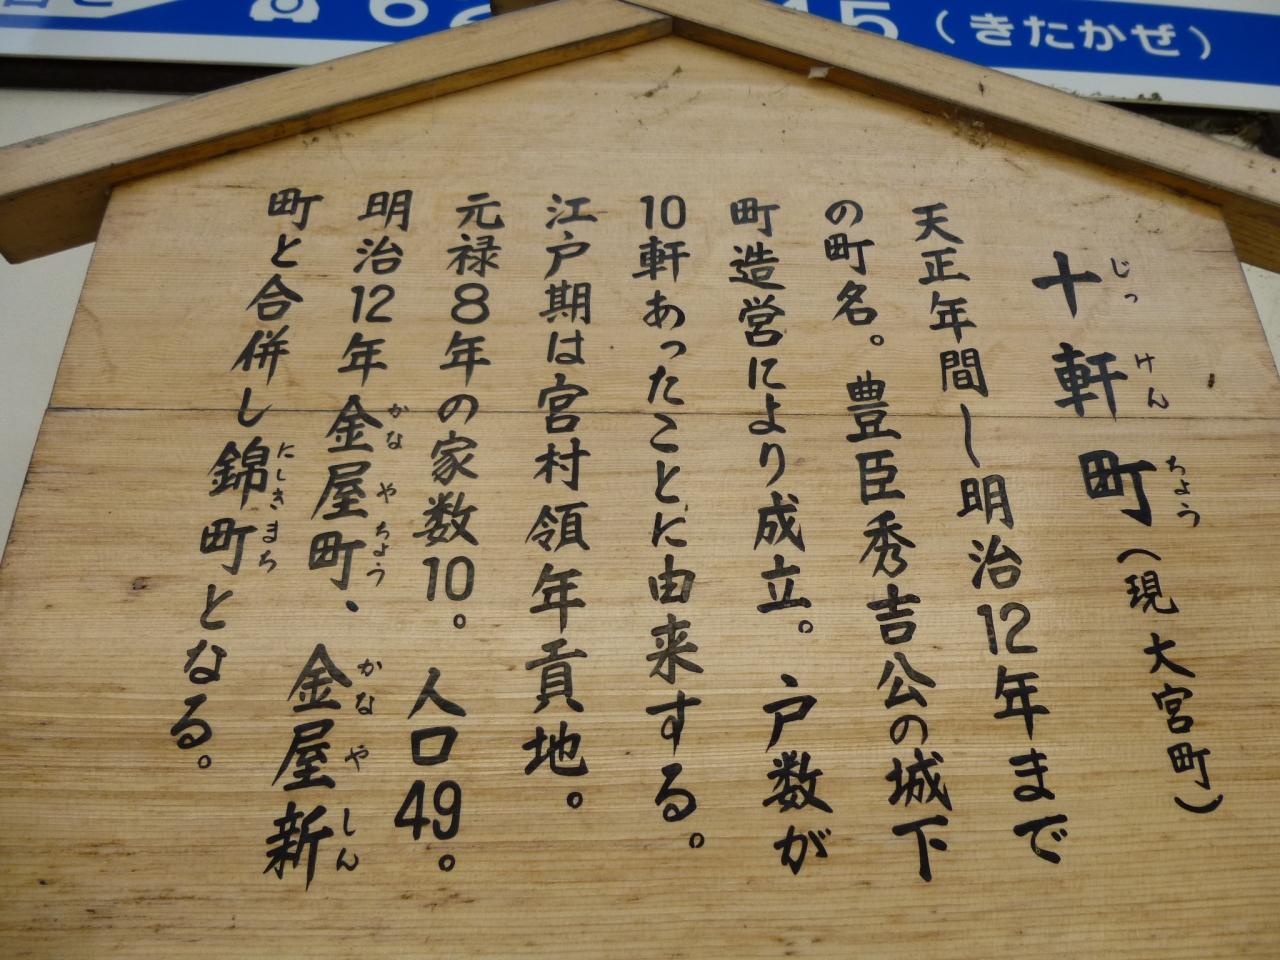 十軒町（現 大宮町）
じっ けん ちょう
天正年間～明治12年まで
の町名。豊臣秀吉公の城下
町造営により成立。戸数が
10軒あったことに由来する。
江戸期は宮村領年貢地。
元禄8年の家数10。人口49。
明治12年金屋町、金屋新
かな や ちょう かな や しん
町と合併し錦町となる。
にしき まち
（きたかぜ）